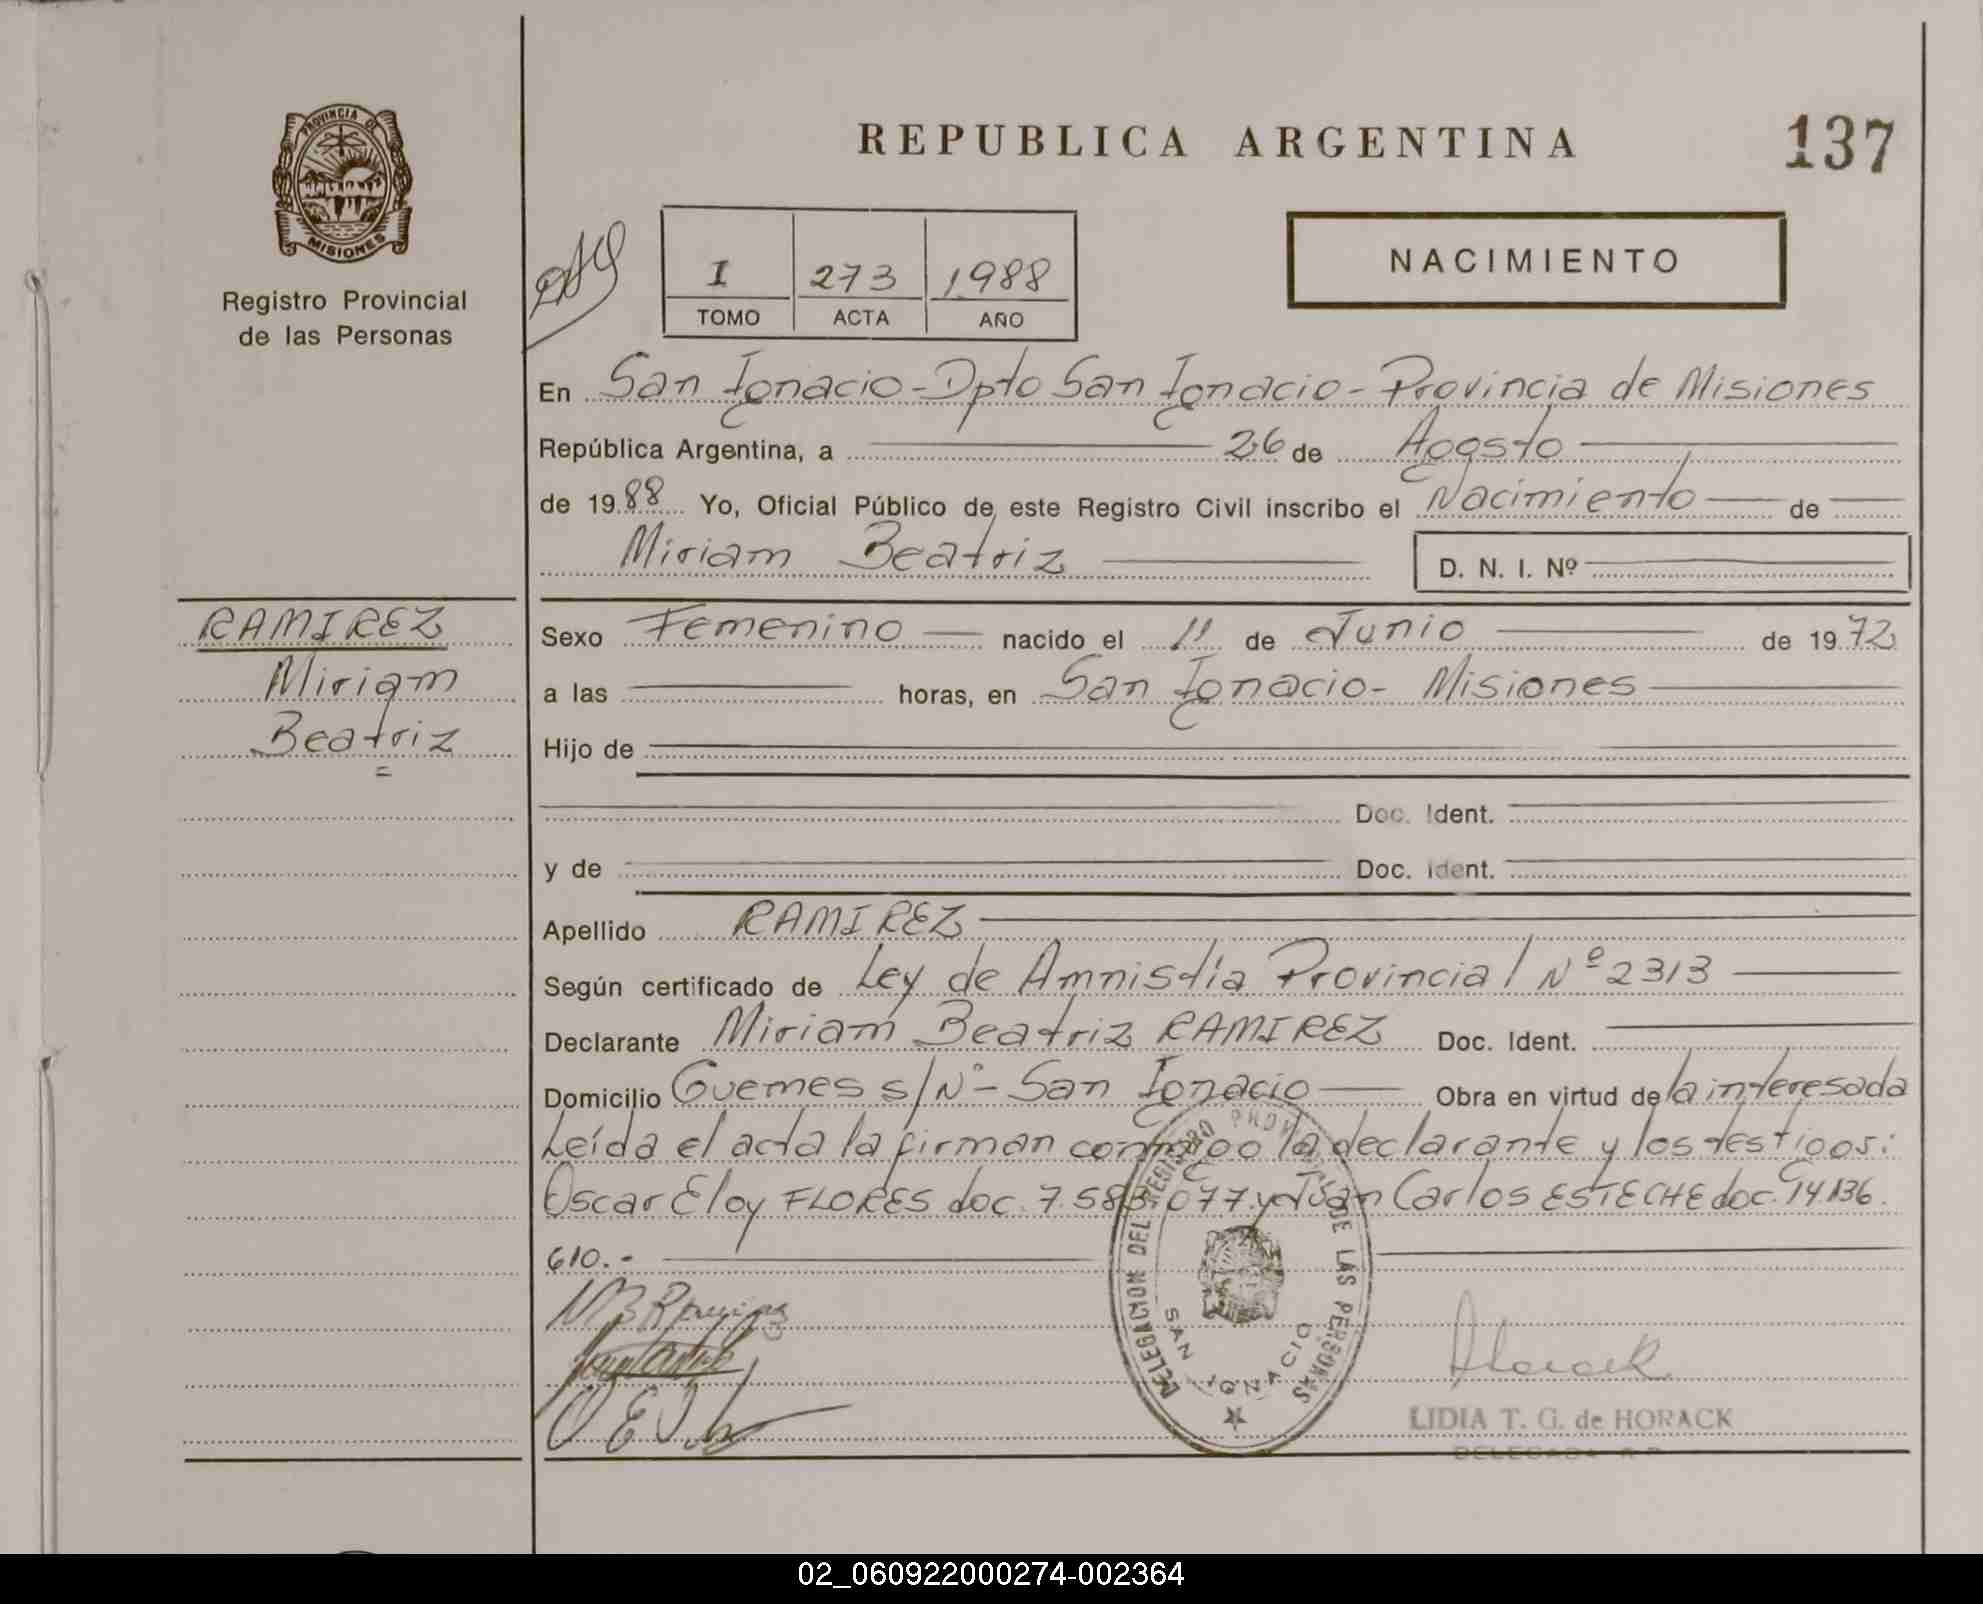 PROVINCIA DE
MISIONES
Registro Provincial
de las Personas
REPUBLICA ARGENTINA
137
I 273 1988
TOMO ACTA AÑO
NACIMIENTO
En San Ignacio - Dpto San Ignacio - Provincia de Misiones
República Argentina, a 26 de Agosto
de 1988 Yo, Oficial Público de este Registro Civil inscribo el Nacimiento de
Miriam Beatriz D. N. I. Nº
RAMIREZ
Miriam
Beatriz
Sexo Femenino nacido el 11 de Junio de 1972
a las horas, en San Ignacio - Misiones
Hijo de
Doc. Ident.
y de Doc. Ident.
Apellido RAMIREZ
Según certificado de Ley de Amnistía Provincial Nº 2313
Declarante Miriam Beatriz RAMIREZ Doc. Ident.
Domicilio Guemes s/Nº - San Ignacio Obra en virtud de la interesada
Leída el acta la firman conmigo la declarante y los testigos:
Oscar Eloy FLORES doc. 7.583.077 y Juan Carlos ESTECHE doc. 14.136.
610.-
DELEGACION DEL REGISTRO PROV. DE LAS PERSONAS
SAN IGNACIO
LIDIA T. G. de HORACK
DELEGADA R.P.
02_060922000274-002364